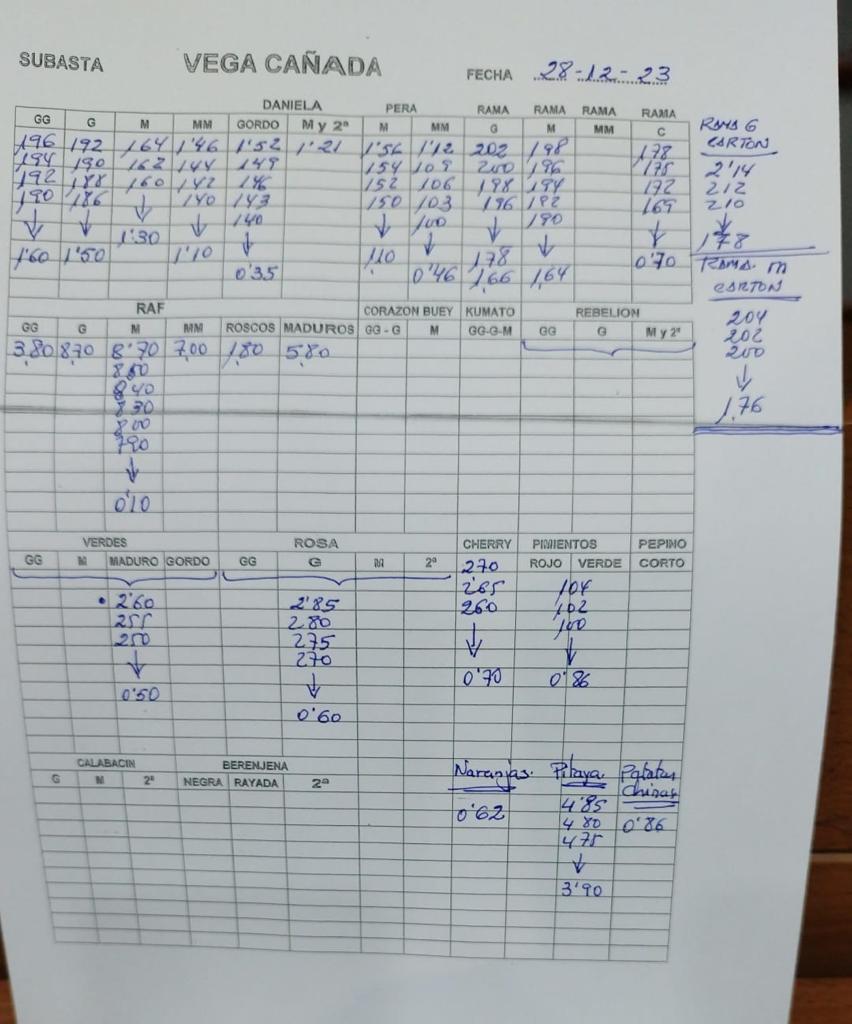 SUBASTA VEGA CAÑADA FECHA 28-12-23
DANIELA PERA RAMA RAMA RAMA RAMA
GG G M MM GORDO M y 2ª M MM G M MM C
RAMA G
CARTON
196 192 164 1'46 1'52 1'21 1'56 1'12 202 198 178
194 190 162 144 149 154 109 200 196 175 2'14
192 188 160 142 146 152 106 198 194 172 212
190 186 ↓ 140 143 150 103 196 192 169 210
↓ ↓ 1'30 ↓ 140 ↓ 100 190 ↓ ↓
1'60 1'50 1'10 ↓ 110 ↓ 178 ↓ 0'70 178
0'35 0'46 1,66 1,64
RAMA M
CARTON
RAF CORAZON BUEY KUMATO REBELION
GG G M MM ROSCOS MADUROS GG - G M GG-G-M GG G M y 2ª
204
202
200
↓
1,76
3,80 8,70 8'70 7,00 1,80 5,80
850
840
830
800
790
↓
0'10
VERDES ROSA CHERRY PIMIENTOS PEPINO
GG M MADURO GORDO GG G M 2ª ROJO VERDE CORTO
270
2'60 2'85 265 104
255 2'80 260 102
250 275 ↓ 100
↓ 270 ↓
0'50 ↓ 0'70 0'86
0'60
CALABACIN BERENJENA Naranjas. Pitaya Patatas
G M 2ª NEGRA RAYADA 2ª Chinas
0'62 4'85 0'86
4'80
475
↓
3'90